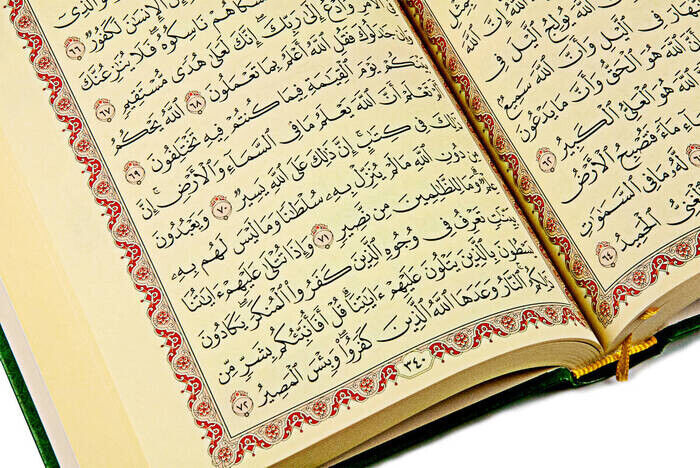 ٱللَّهَ يُولِجُ ٱلَّيْلَ فِى
فِى ٱلَّيْلِ وَأَنَّ ٱللَّهَ سَمِيعٌ
ٱللَّهَ هُوَ ٱلْحَقُّ وَأَنَّ مَا يَدْعُونَ
ٱللَّهَ هُوَ ٱلْعَلِىُّ ٱلْكَبِيرُ ٦٢
مَآءً فَتُصْبِحُ ٱلْأَرْضُ
٦٣ لَهُۥ مَا فِى ٱلسَّمَٰوَٰتِ
ٱلْحَمِيدُ ٦٤
ٱلَّذِىٓ
ٱلْإِنسَٰنَ لَكَفُورٌ ٦٦
نَاسِكُوهُ فَلَا يُنَٰزِعُنَّكَ
إِلَىٰ رَبِّكَ إِنَّكَ لَعَلَىٰ هُدًى مُّسْتَقِيمٍ ٦٧
جَٰدَلُوكَ فَقُلِ ٱللَّهُ أَعْلَمُ بِمَا تَعْمَلُونَ ٦٨ ٱللَّهُ يَحْكُمُ
بَيْنَكُمْ يَوْمَ ٱلْقِيَٰمَةِ فِيمَا كُنتُمْ فِيهِ تَخْتَلِفُونَ ٦٩
تَعْلَمْ أَنَّ ٱللَّهَ يَعْلَمُ مَا فِى ٱلسَّمَآءِ وَٱلْأَرْضِ إِنَّ
ذَٰلِكَ فِى كِتَٰبٍ إِنَّ ذَٰلِكَ عَلَى ٱللَّهِ يَسِيرٌ ٧٠ وَيَعْبُدُونَ
مِن دُونِ ٱللَّهِ مَا لَمْ يُنَزِّلْ بِهِۦ سُلْطَٰنًا وَمَا لَيْسَ لَهُم بِهِۦ
عِلْمٌ وَمَا لِلظَّٰلِمِينَ مِن نَّصِيرٍ ٧١ وَإِذَا تُتْلَىٰ عَلَيْهِمْ ءَايَٰتُنَا
بَيِّنَٰتٍ تَعْرِفُ فِى وُجُوهِ ٱلَّذِينَ كَفَرُوا۟ ٱلْمُنكَرَ يَكَادُونَ
يَسْطُونَ بِٱلَّذِينَ يَتْلُونَ عَلَيْهِمْ ءَايَٰتِنَا قُلْ أَفَأُنَبِّئُكُم بِشَرٍّ مِّن
ذَٰلِكُمُ ٱلنَّارُ وَعَدَهَا ٱللَّهُ ٱلَّذِينَ كَفَرُوا۟ وَبِئْسَ ٱلْمَصِيرُ ٧٢
٣٤٠